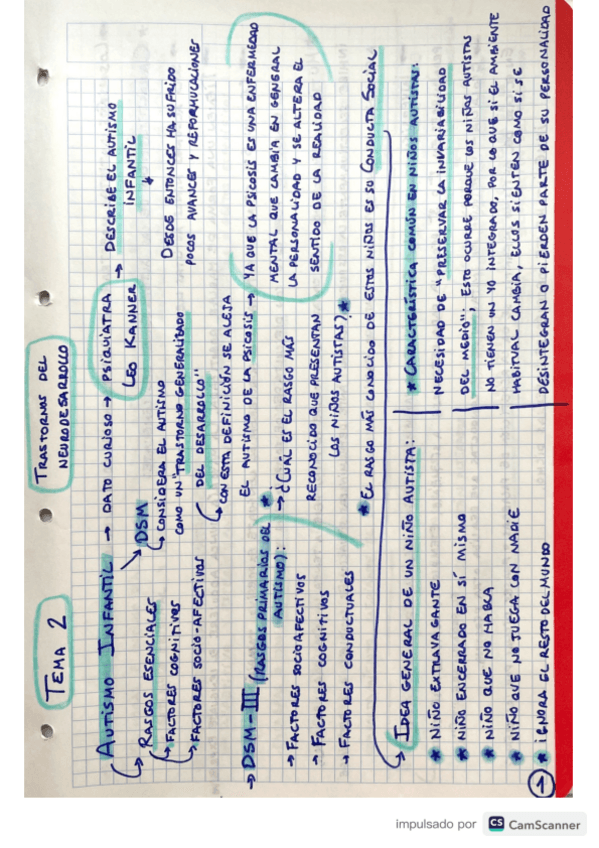 TEMA 2
TRASTORNOS DEL
NEURODESARROLLO
AUTISMO INFANTIL → DATO CURIOSO → PSIQUIATRA
LEO KANNER
→ DESCRIBE EL AUTISMO
INFANTIL
*
DESDE ENTONCES HA SUFRIDO
POCOS AVANCES Y REFORMULACIONES
RASGOS ESENCIALES
→ FACTORES COGNITIVOS
→ FACTORES SOCIO-AFECTIVOS
DSM
→ CONSIDERA EL AUTISMO
COMO UN "TRASTORNO GENERALIZADO
DEL DESARROLLO"
→ CON ESTA DEFINICIÓN SE ALEJA
EL AUTISMO DE LA PSICOSIS → YA QUE LA PSICOSIS ES UNA ENFERMEDAD
MENTAL QUE CAMBIA EN GENERAL
LA PERSONALIDAD Y SE ALTERA EL
SENTIDO DE LA REALIDAD
→ DSM-III (RASGOS PRIMARIOS DEL
AUTISMO):
→ FACTORES SOCIOAFECTIVOS
→ FACTORES COGNITIVOS
→ FACTORES CONDUCTUALES
* → ¿CUÁL ES EL RASGO MÁS
RECONOCIDO QUE PRESENTAN
LOS NIÑOS AUTISTAS? *
* EL RASGO MÁS CONOCIDO DE ESTOS NIÑOS ES SU CONDUCTA SOCIAL
→ IDEA GENERAL DE UN NIÑO AUTISTA:
* NIÑO EXTRAVAGANTE
* NIÑO ENCERRADO EN SÍ MISMO
* NIÑO QUE NO HABLA
* NIÑO QUE NO JUEGA CON NADIE
* IGNORA EL RESTO DEL MUNDO
* CARACTERÍSTICA COMÚN EN NIÑOS AUTISTAS:
NECESIDAD DE "PRESERVAR LA INVARIABILIDAD
DEL MEDIO". ESTO OCURRE PORQUE LOS NIÑOS AUTISTAS
NO TIENEN UN YO INTEGRADO, POR LO QUE SI EL AMBIENTE
HABITUAL CAMBIA, ELLOS SIENTEN COMO SI SE
DESINTEGRAN O PIERDEN PARTE DE SU PERSONALIDAD
1
impulsado por CS CamScanner